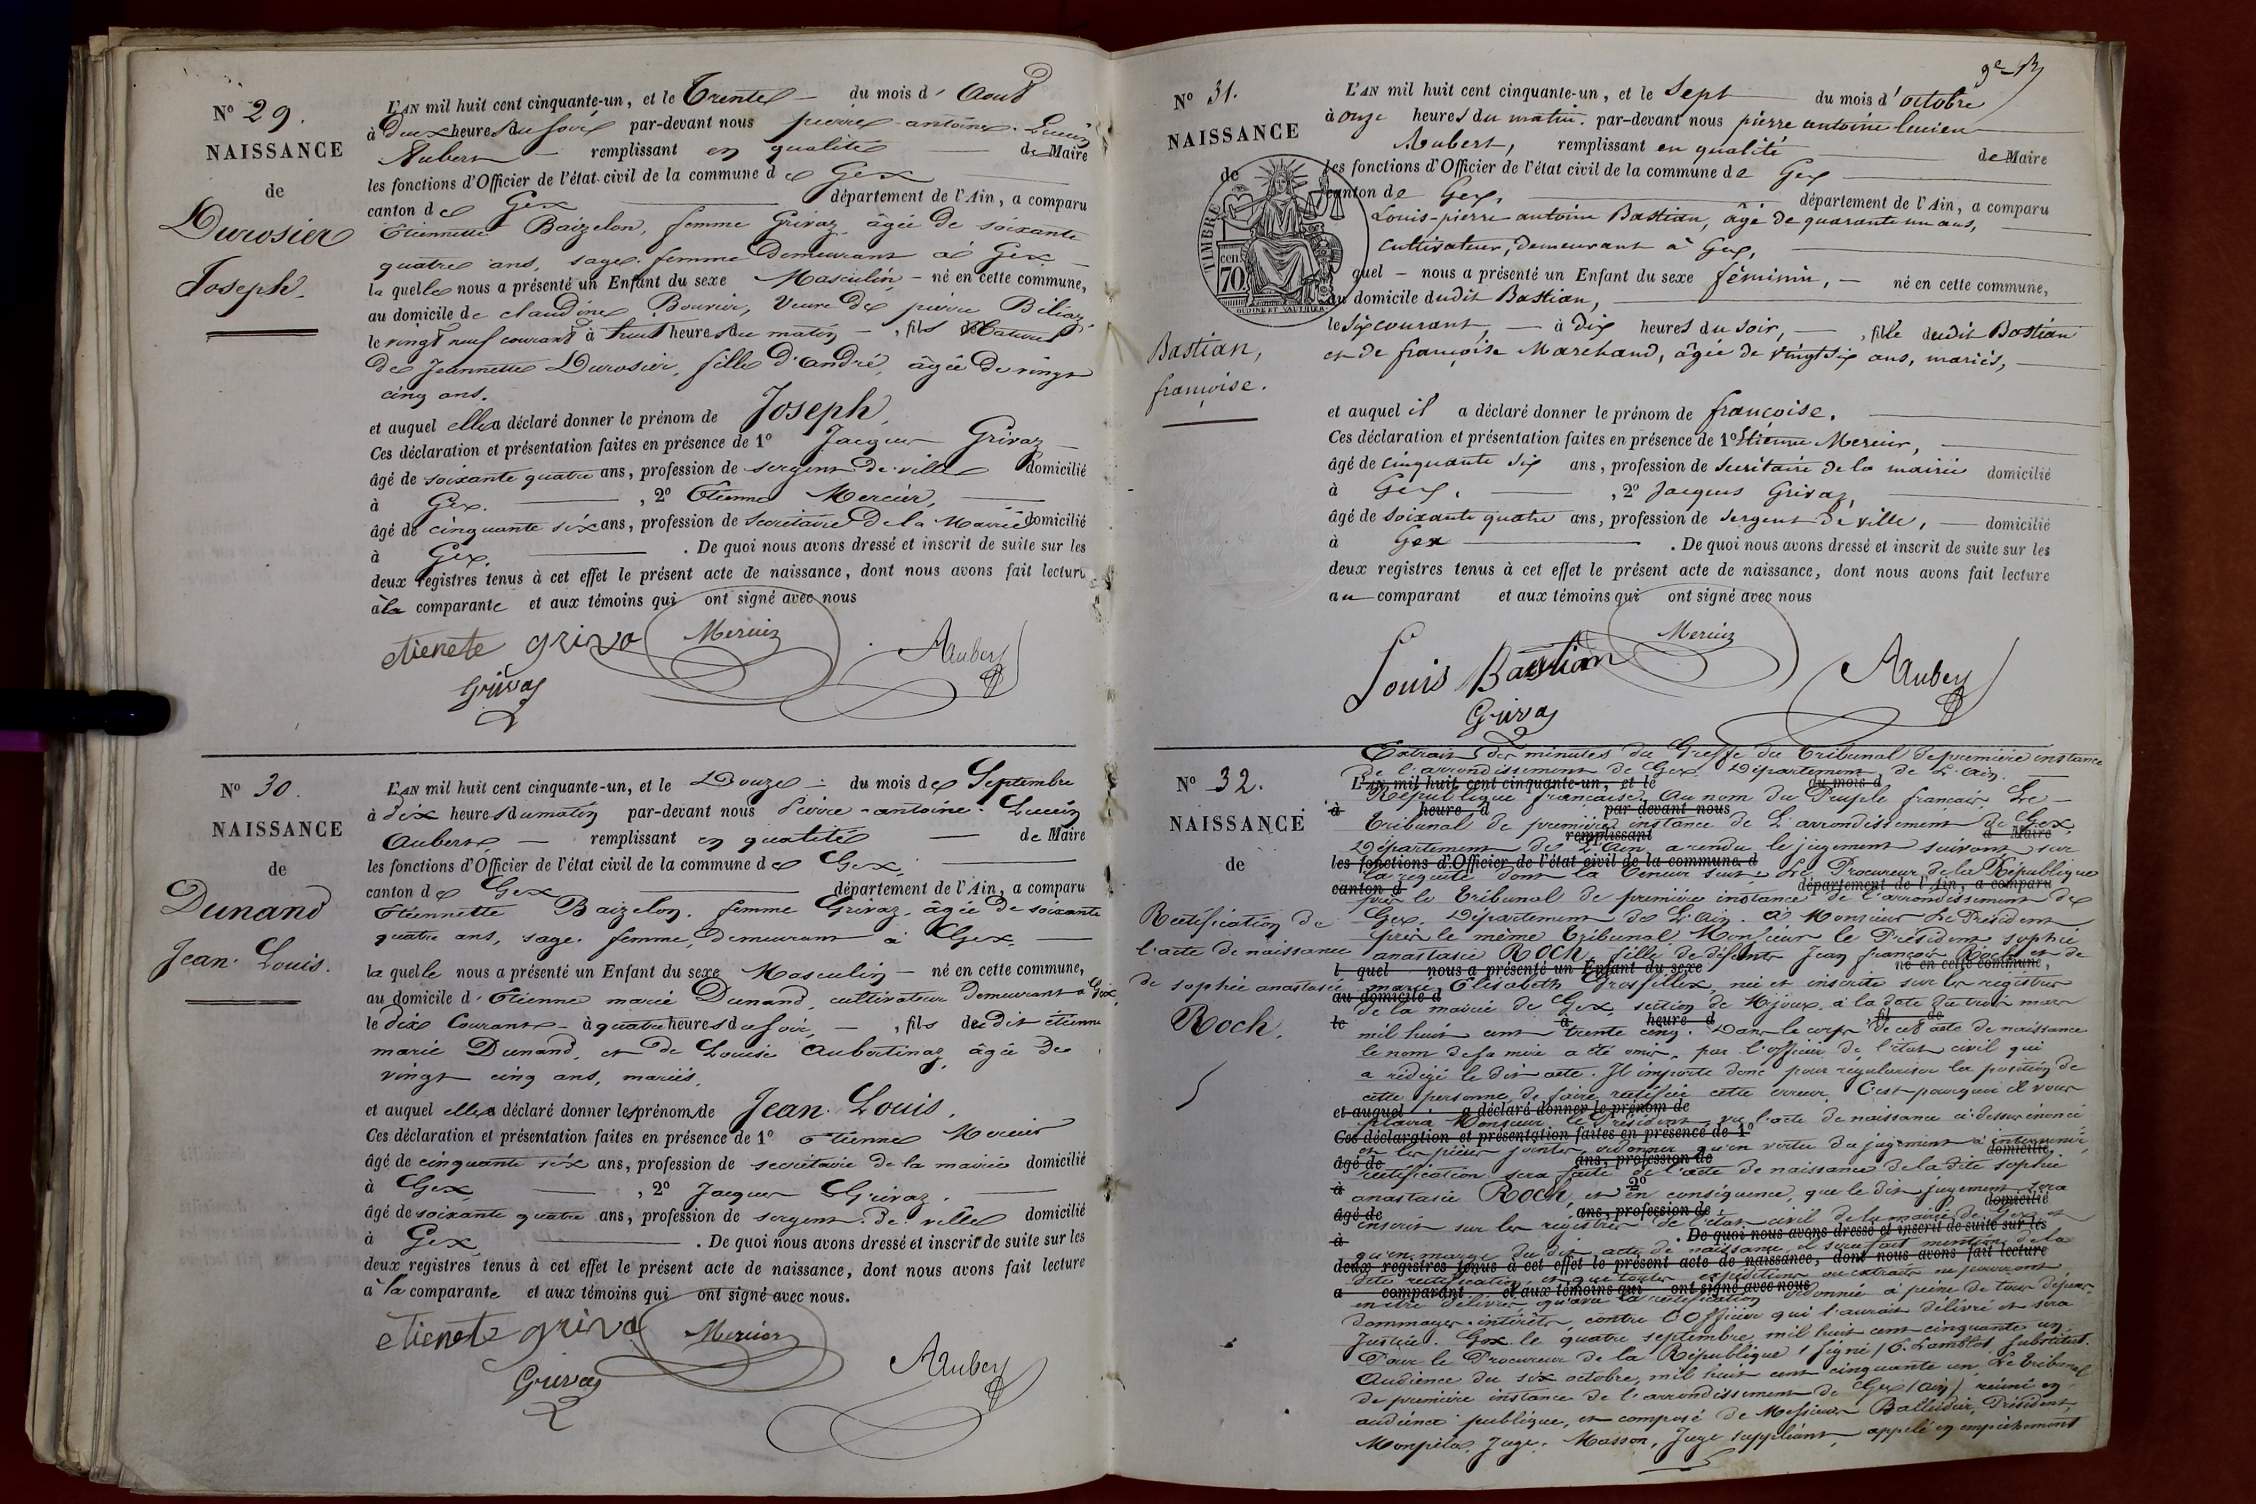 N° 29.
NAISSANCE
de
Durosier
Joseph.
L'AN mil huit cent cinquante-un, et le Trente du mois d'Aout
à Deux heures du soir par-devant nous pierre antoine Lucien
Aubert remplissant en qualité de Maire
les fonctions d'Officier de l'état civil de la commune de Gex
canton de Gex département de l'Ain, a comparu
Etiennette Baizelon, femme Grivaz, âgée de soixante
quatre ans, sage femme Demeurant à Gex
laquelle nous a présenté un Enfant du sexe Masculin né en cette commune,
au domicile de claudine Bouvier, veuve de pierre
le vingt neuf courant à huit heures du matin, fils Naturel
de Jeannette Durosier, fille d'andré, âgée de vingt
cinq ans.
et auquel elle a déclaré donner le prénom de Joseph,
Ces déclaration et présentation faites en présence de 1° Jacques Grivaz
âgé de soixante quatre ans, profession de sergent de ville domicilié
à Gex. , 2° Etienne Mercier,
âgé de cinquante six ans, profession de Secrétaire De la Mairie domicilié
à Gex. . De quoi nous avons dressé et inscrit de suite sur les
deux registres tenus à cet effet le présent acte de naissance, dont nous avons fait lecture
à la comparante et aux témoins qui ont signé avec nous
etienete griva Mercier AAubert
Grivaz
N° 30.
NAISSANCE
de
Dunand
Jean Louis.
L'AN mil huit cent cinquante-un, et le Douze du mois de Septembre
à dix heures du matin par-devant nous Pierre antoine Lucien
Aubert remplissant en qualité de Maire
les fonctions d'Officier de l'état civil de la commune de Gex,
canton de Gex département de l'Ain, a comparu
Etiennette Baizelon, femme Grivaz, âgée de soixante
quatre ans, sage femme, demeurant à Gex.
laquelle nous a présenté un Enfant du sexe Masculin né en cette commune,
au domicile d'Etienne marie Dunand, cultivateur demeurant à Gex,
le dix Courant à quatre heures du soir, , fils dudit étienne
marie Dunand, et de Louise aubertinaz, âgée de
vingt cinq ans, mariés.
et auquel elle a déclaré donner les prénoms de Jean Louis.
Ces déclaration et présentation faites en présence de 1° Etienne Mercier
âgé de cinquante six ans, profession de secrétaire de la mairie domicilié
à Gex , 2° Jacques Grivaz.
âgé de soixante quatre ans, profession de sergent de ville domicilié
à Gex . De quoi nous avons dressé et inscrit de suite sur les
deux registres tenus à cet effet le présent acte de naissance, dont nous avons fait lecture
à la comparante et aux témoins qui ont signé avec nous.
etienete griva Mercier AAubert
Grivaz
N° 31.
NAISSANCE
de
TIMBRE
cent
70
OUDINE ET VAUTHIER
Bastian,
françoise.
L'AN mil huit cent cinquante-un, et le Sept du mois d'octobre
à onze heures du matin. par-devant nous pierre antoine lucien
Aubert, remplissant en qualité de Maire
les fonctions d'Officier de l'état civil de la commune de Gex
canton de Gex, département de l'Ain, a comparu
Louis-pierre antoine Bastian, âgé de quarante un ans,
cultivateur, demeurant à Gex,
quel nous a présenté un Enfant du sexe féminin, né en cette commune,
au domicile dudit Bastian,
le six courant, à dix heures du soir, , fille dudit Bastian
et de françoise Marchand, âgée de vingt six ans, mariés,
et auquel il a déclaré donner le prénom de françoise.
Ces déclaration et présentation faites en présence de 1° Etienne Mercier,
âgé de cinquante six ans, profession de Secrétaire de la mairie domicilié
à Gex. , 2° Jacques Grivaz,
âgé de soixante quatre ans, profession de Sergent de ville, domicilié
à Gex . De quoi nous avons dressé et inscrit de suite sur les
deux registres tenus à cet effet le présent acte de naissance, dont nous avons fait lecture
au comparant et aux témoins qui ont signé avec nous
Louis Bastian Mercier AAubert
Grivaz
N° 32.
NAISSANCE
de
Rectification de
l'acte de naissance
de sophie anastasie
Roch.
Extrait des minutes du Greffe du Tribunal de première instance
de l'arrondissement de Gex Département de L'ain.
L'AN mil huit cent cinquante-un, et le du mois d
République française, Au nom du Peuple français Le
à heure d par-devant nous
Tribunal de première instance de L'arrondissement de Gex,
remplissant d Maire
Département de L'Ain, a rendu le jugement suivant sur
les fonctions d'Officier de l'état civil de la commune d
la requête dont la teneur suit : Le Procureur de la République
canton d département de l'Ain, a comparu
près le Tribunal de première instance de l'arrondissement de
Gex. Département de L'Ain. A Monsieur Le Président
près le même Tribunal Monsieur le Président sophie
anastasie ROCH, fille de défunts Jean françois Roch et de
l quel nous a présenté un Enfant du sexe né en cette commune,
marie Elisabeth Grosfillex, née et inscrite sur les registres
au domicile d
de la mairie de Gex, section de Mijoux, à la date du trois mars
le à heure d , fil de
mil huit cent trente cinq. Dans le corps de cet acte de naissance
le nom de sa mère a été omis, par l'officier de l'état civil qui
a rédigé le dit acte. Il importe donc pour régulariser la position de
cette personne de faire rectifier cette erreur. C'est pourquoi il vous
et auquel a déclaré donner le prénom de
plaira Monsieur le Président, vu l'acte de naissance ci-dessus énoncé
Ces déclaration et présentation faites en présence de 1°
et les pièces jointes, ordonner qu'en vertu du jugement à intervenir,
âgé de ans, profession de domicilié
rectification sera faite de l'acte de naissance de la dite sophie
à 2°
anastasie ROCH, et en conséquence, que le dit jugement sera
âgé de ans, profession de domicilié
inscrit sur les registres de l'état civil de la mairie de Gex et
à . De quoi nous avons dressé et inscrit de suite sur les
qu'en marge du dit acte de naissance, il sera fait mention de la
deux registres tenus à cet effet le présent acte de naissance, dont nous avons fait lecture
dite rectification, et que toutes expéditions ou extraits ne pourront
a comparant et aux témoins qui ont signé avec nous
en être délivrés qu'avec la rectification ordonnée à peine de tous dépens,
dommages-intérêts contre l'Officier qui l'aurait délivré et sera
Justice. Gex le quatre septembre mil huit cent cinquante un.
Pour le Procureur de la République signé Substitut.
Audience du six octobre, mil huit cent cinquante un, Le Tribunal
de première instance de l'arrondissement de Gex (Ain) réuni en
audience publique, et composé de Messieurs Balleidier, Président,
Monpela, Juge, Masson, Juge suppléant, appelé en empêchement